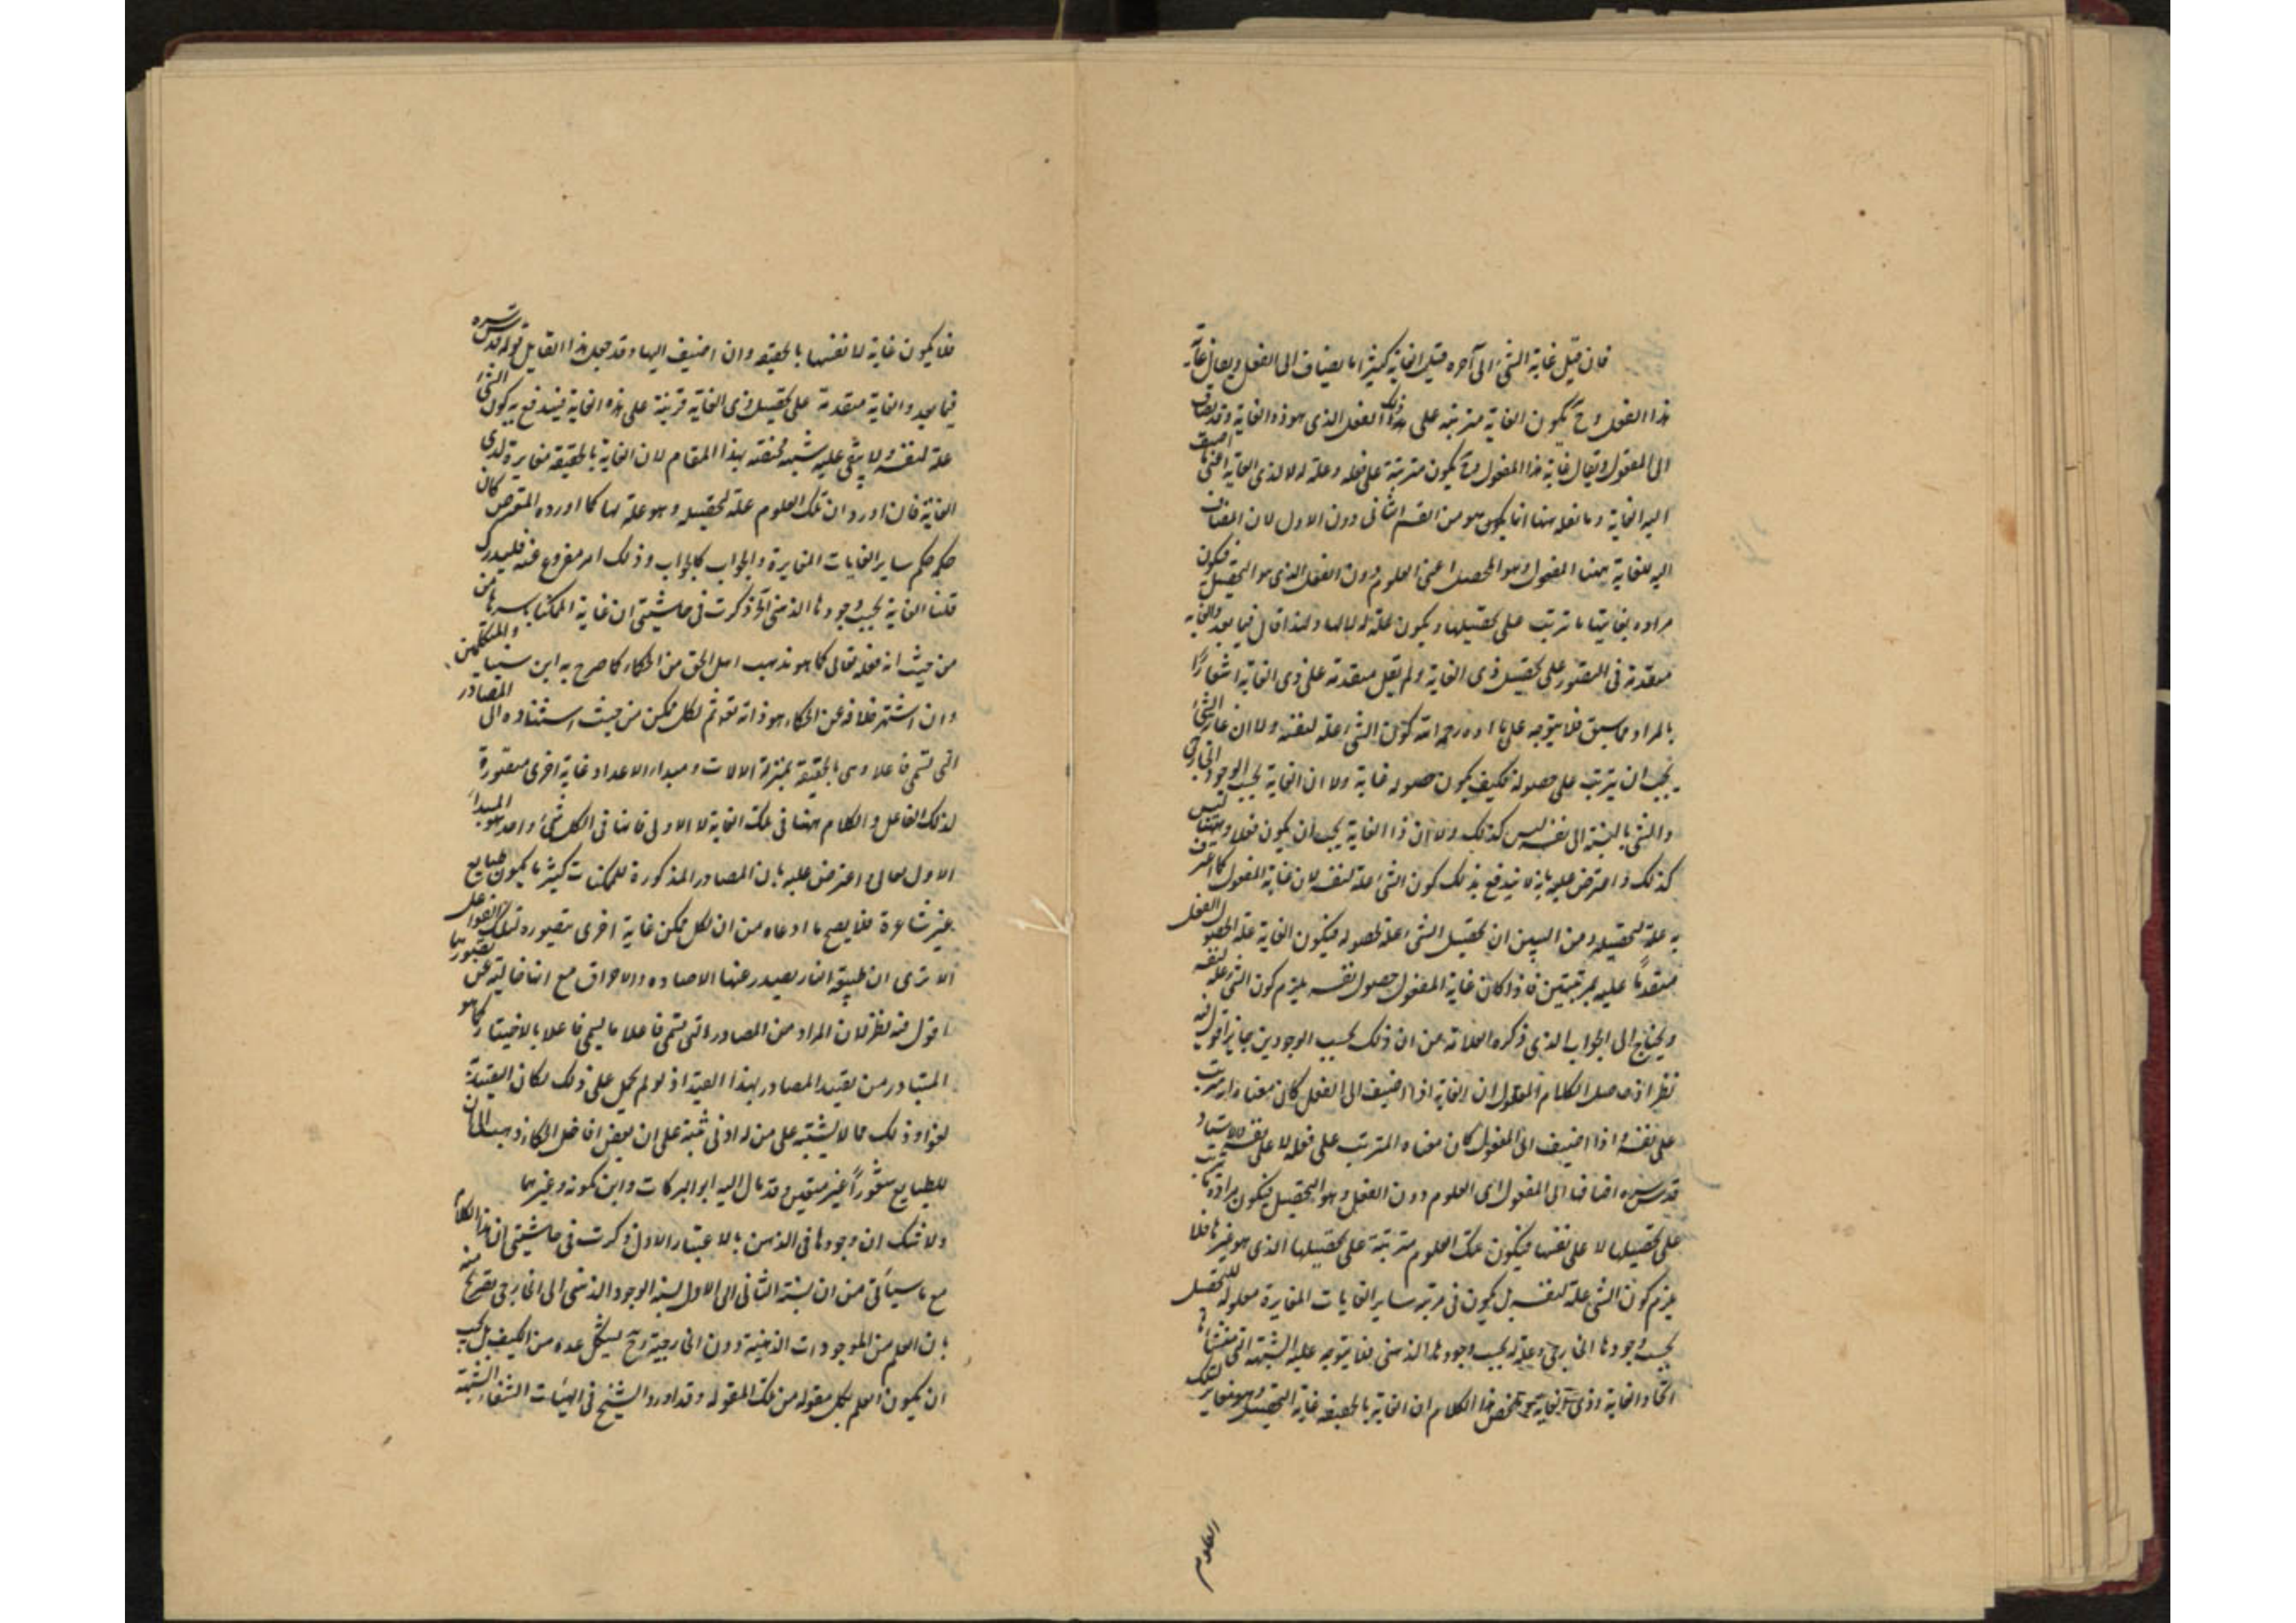 فان قيل غاية الشئ الى آخره قيل الغاية كثيرا ما يضاف الى الفعل ويقال غاية
هذا الفعل وح يكون الغاية مترتبة على ذلك الفعل الذى هو ذو الغاية وقد يضاف
الى المفعول ويقال غاية هذا المفعول وح يكون مترتبة على فعله وعلة له لا لذى الغاية اعنى ما اضيف
اليه الغاية وما نعله هنا انما يكون هو من القسم الثانى دون الاول لان المضاف
اليه للغاية ههنا المفعول وهو المحصل اعنى العلوم دون الفعل الذى هو التحصيل فيكون
مراده بغايتها ما ترتب على تحصيلها ويكون علة له لا لها ولهذا قال فيما بعد والغاية
متقدمة فى التصور على تحصيل ذى الغاية ولم يقل متقدمة على ذى الغاية اشعارًا
بالمراد مما سبق فلا يتوجه على ما اراده رحمه الله كون الشئ علة لنفسه ولا ان غاية الشئ
يجب ان يترتب على حصوله فكيف يكون حصوله غاية ولا ان الغاية بحسب الوجود الخارجى
والشئ بالنسبة الى نفسه ليس كذلك ولا ان ذا الغاية يجب ان يكون فعلا وههنا ليس
كذلك واعترض عليه بانه لا يندفع بذلك كون الشئ علة لنفسه لان غاية المفعول كما اعترف
به علة لتحصيله ومن البين ان تحصيل الشئ علة لحصوله فيكون الغاية علة لحصول الفعل
متقدمًا عليه بمرتبتين فاذا كان غاية المفعول حصول نفسه يلزم كون الشئ علة لنفسه
ويحتاج الى الجواب الذى ذكره العلامة من ان ذلك بحسب الوجودين جايز اقول فيه
نظر اذ حاصل الكلام المنقول ان الغاية اذا اضيف الى الفعل كان معناه انه يترتب
على نفسه واذا اضيف الى المفعول كان معناه المترتب على فعله لا على نفسه والاستاد
قدس سره اضافها الى المفعول اى العلوم دون الفعل وهو التحصيل فيكون مراده ما يترتب
على تحصيلها لا على نفسها فيكون تلك العلوم مترتبة على تحصيلها الذى هو غيرها فلا
يلزم كون الشئ علة لنفسه بل يكون فى مرتبة ساير الغايات المغايرة معلولة للتحصيل
بحسب وجودها الخارجى وعلة له بحسب وجودها الذهنى فلا يتوجه عليه الشبهة التى منشأها
اتحاد الغاية وذى الغاية فملخص هذا الكلام ان الغاية بالحقيقة غاية التحصيل وهو مغاير لتلك
العلوم
فلا يكون غاية لانفسها بالحقيقة وان اضيف اليها وقد جعل هذا القايل قوله قدس سره
فيما بعد والغاية متقدمة على تحصيل ذى الغاية قرينة على هذه الغاية فيندفع به كون الشئ
علة لنفسه ولا يبقى عليه شبهة مختصة بهذا المقام لان الغاية بالحقيقة مغايرة لذى
الغاية فان اورد ان تلك العلوم علة لتحصيله وهو علة لها كما اورده المعترض كان
حكمه حكم ساير الغايات المغايرة والجواب كالجواب وذلك امر مفروغ عنه فليدرك
قلنا الغاية بحسب وجودها الذهنى آه ذكرت فى حاشيتى ان غاية الممكنات باسرها من
من حيث انه فعله تعالى كما هو مذهب اهل الحق من الحكماء كما صرح به ابن سينا والمتكلمين
وان اشتهر خلافه عن الحكماء هو ذاته تعالى ثم لكل ممكن من حيث استناده الى المصادر
التى تسمى فاعلا وهى بالحقيقة بمنزلة الالات ومبدأ الاعداد غاية اخرى متصورة
لذلك الفاعل والكلام ههنا فى تلك الغاية لا الاولى فانها فى الكل شئ واحد هو المبدأ
الاول تعالى واعترض عليه بان المصادر المذكورة للممكنات كثيرا ما يكون طبايع
غير شاعرة فلا يصح ما ادعاه من ان لكل ممكن غاية اخرى يتصوره تلك الفواعل
الا ترى ان طبيعة النار يصدر عنها الاضاءه والاحراق مع انها خالية عن تصورهما
اقول فيه نظر لان المراد من المصادر التى تسمى فاعلا ما يسمى فاعلا بالاختيار كما هو
المتبادر من تقييد المصادر بهذا القيد اذ لو لم يحمل على ذلك لكان التقييد به
لغوا وذلك مما لا يشتبه على من له ادنى تنبه على ان بعض افاضل الحكماء ذهب الى ان
للطبايع شعورًا غير متعين وقد مال اليه ابو البركات وابن كمونه وغيرهما
ولا شك ان وجودها فى الذهن بالاعتبار الاول ذكرت فى حاشيتى ان هذا الكلام
مع ما سيأتى من ان نسبة الثانى الى الاول نسبة الوجود الذهنى الى الخارجى تصريح منه
بان العلم من الموجودات الذهنية دون الخارجية وح يشكل عده من الكيف بل يجب
ان يكون العلم بكل مقولة من تلك المقولة وقد اورد الشيخ فى الهيات الشفاء الشبهة